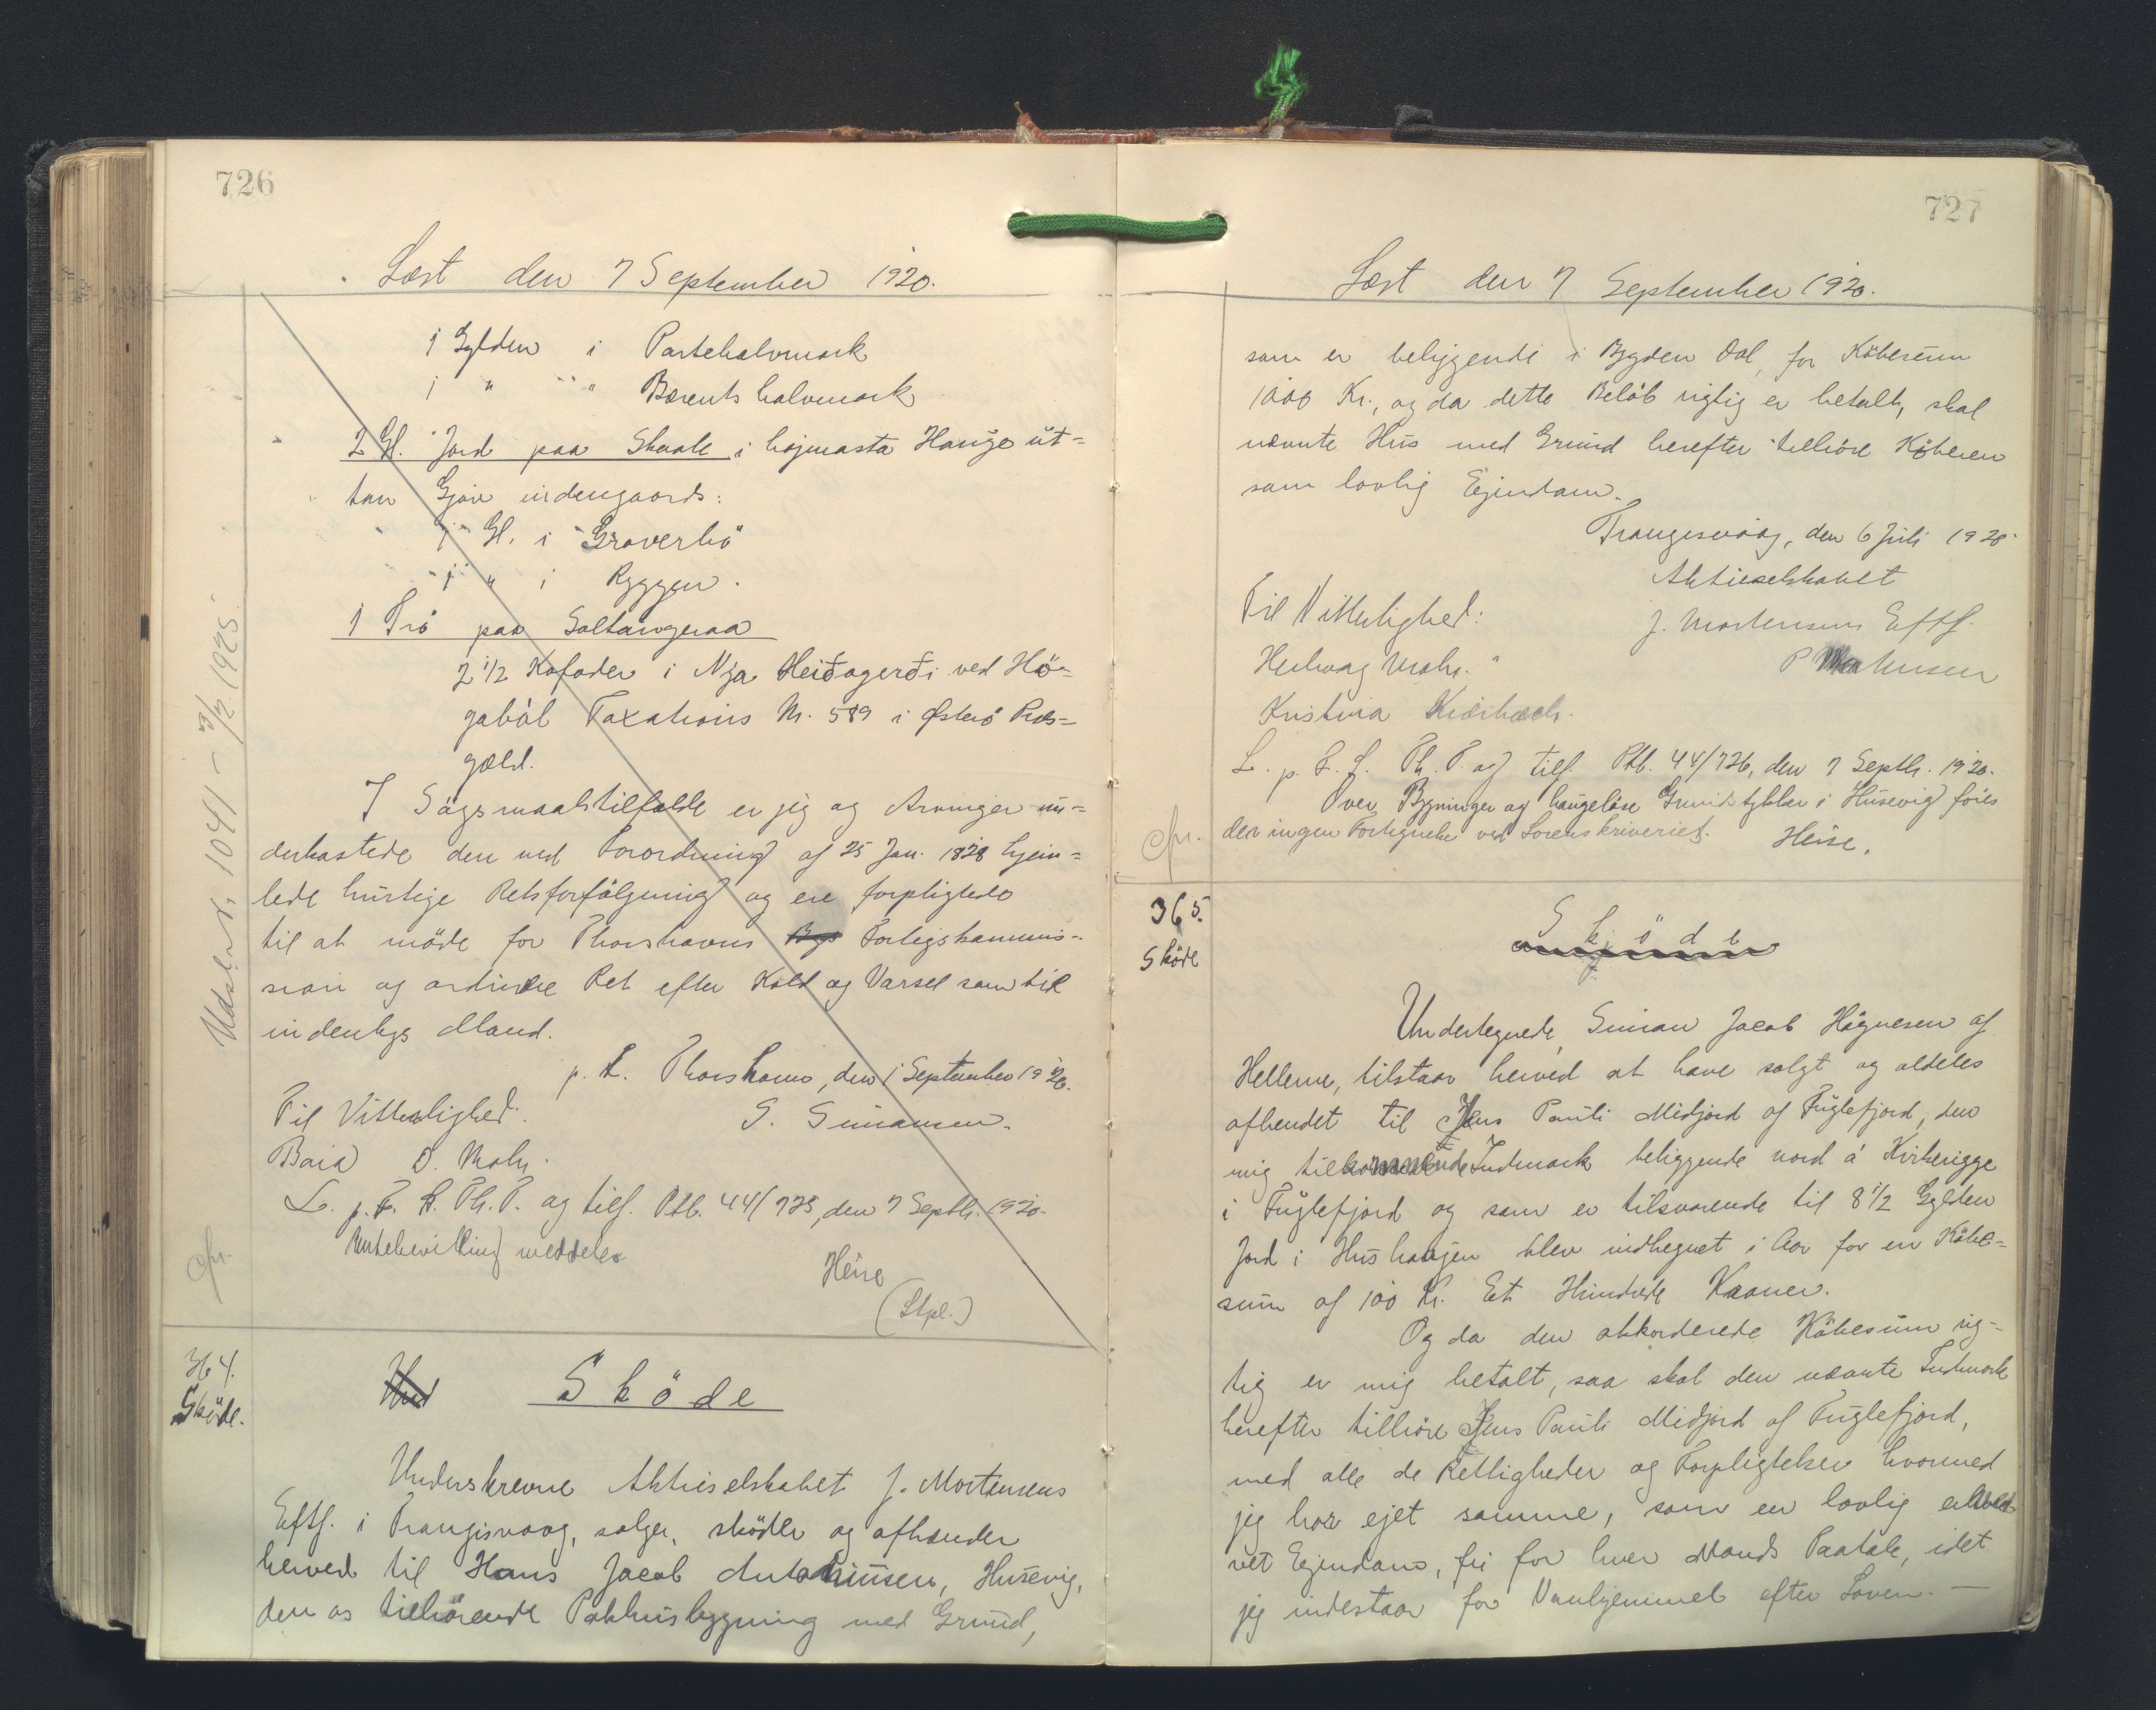 726
Læst den 7 September 1920.
1 Gylden i Partehalvmark
1 " " Bærentshalvmark
2 Gl. Jord paa Skaale i højmasta Hauge út=
tan Gjov indengaards:
1 Gl. i Graverbö
1 " i Ryggen.
1 Trö paa Saltangeraa
2 1/2 Kofoder i Nja Heiðagerði ved Hö=
gaból Taxations Nr. 589 i Østerö Præs=
gæld.
I Sögsmaalstilfælde er jeg og Arvinger un=
derkastede den ved Forordning af 25 Jan. 1828 hjem=
lede hurtige Retsforfölgning og ere forpligtede
til at möde for Thorshavns Forligskommis=
sion og ordinære Ret efter Kald og Varsel som til
indenbys Mand.
p. t. Thorshavn, den 1 September 1920.
Til Vitterlighed: S. Simonsen.
Baia D. Mohr.
L. p. F. S. Th. P. og tilf. Ptb. 44/725, den 7 Septbr. 1920.
Untebevilling meddeles
Heise
(Stpl.)
cfr.
Udslet Nr. 1041 - 3/2 1925.
364.
Sköde.
Sköde
Underskrevne Aktieselskabet J. Mortensens
Eftf. i Trangisvaag, sælger, sköder og afhænder
herved til Hans Jacob Antoniusen, Husevig,
den os tilhörende Pakhusbygning med Grund,
727
Læst den 7 September 1920.
som er beliggende i Bygden Dal, for Köbesum
1000 Kr., og da dette Belöb rigtig er betalt, skal
nævnte Hus med Grund herefter tilhöre Köberen
som lovlig Ejendom.
Trangesvaag, den 6 Juli 1920.
Aktieselskabet
Til Vitterlighed: J. Mortensens Eftf.
Hedvag Mohr. P Mortensen
Kristina Kiærbæch.
L. p. F. S. Th. P. og tilf. Ptb. 44/726, den 7 Septbr. 1920.
Over Bygninger og haugelöse Grundstykker i Husevig föres
der ingen Fortegnelse ved Sorenskriveriet. Heise.
cfr.
365.
Sköde
Sköde
Undertegnede, Simon Jacob Högnesen af
Hellerne, tilstaar herved at have solgt og aldeles
afhendet til Jens Pauli Midjord af Fuglefjord, den
mig tilkommende Indmark beliggende nord á Kirkerigge
i Fuglefjord og som er tilsvarende til 8 1/2 Gylden
Jord i Hushaugen blev indhegnet i Aar for en Köbe=
sum af 100 Kr. Et Hundrede Kroner.
Og da den akkorderede Köbesum rig=
tig er mig betalt, saa skal den nævnte Indmark
herefter tilhöre Jens Pauli Midjord af Fuglefjord,
med alle de Rettigheder og Forpligtelser hvormed
jeg har ejet samme, som en lovlig erhver
vet Ejendom, fri for hver Mands Paatale, idet
jeg indestaar for Vanhjemmel efter Loven. —